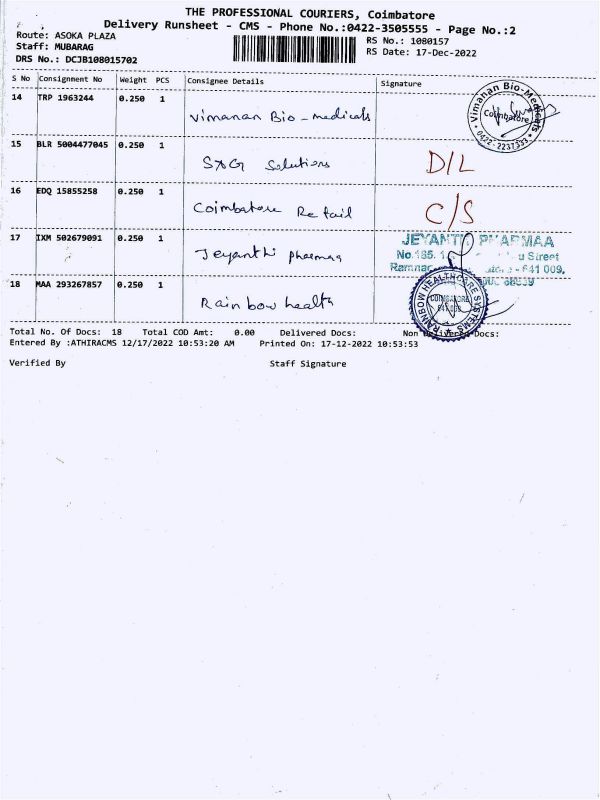 THE PROFESSIONAL COURIERS, Coimbatore
Delivery Runsheet - CMS - Phone No.:0422-3505555 - Page No.:2
Route: ASOKA PLAZA
Staff: MUBARAG
DRS No.: DCJB108015702
RS No.: 1080157
RS Date: 17-Dec-2022
S No Consignment No Weight PCS Consignee Details Signature
14 TRP 1963244 0.250 1 Vimanan Bio-medicals
Vimanan Bio-Medicals Coimbatore 0422-2237333
15 BLR 5004477045 0.250 1 S&G Solutions D/L
16 EDQ 15855258 0.250 1 Coimbatore Retail C/S
17 IXM 502679091 0.250 1 Jeyanthi pharmaa
JEYANTHI PHARMAA
No.185, Street
- 641 009.
18 MAA 293267857 0.250 1 Rainbow health
RAINBOW HEALTHCARE SYSTEMS COIMBATORE
Total No. Of Docs: 18 Total COD Amt: 0.00 Delivered Docs: Non Delivered Docs:
Entered By :ATHIRACMS 12/17/2022 10:53:20 AM Printed On: 17-12-2022 10:53:53
Verified By Staff Signature